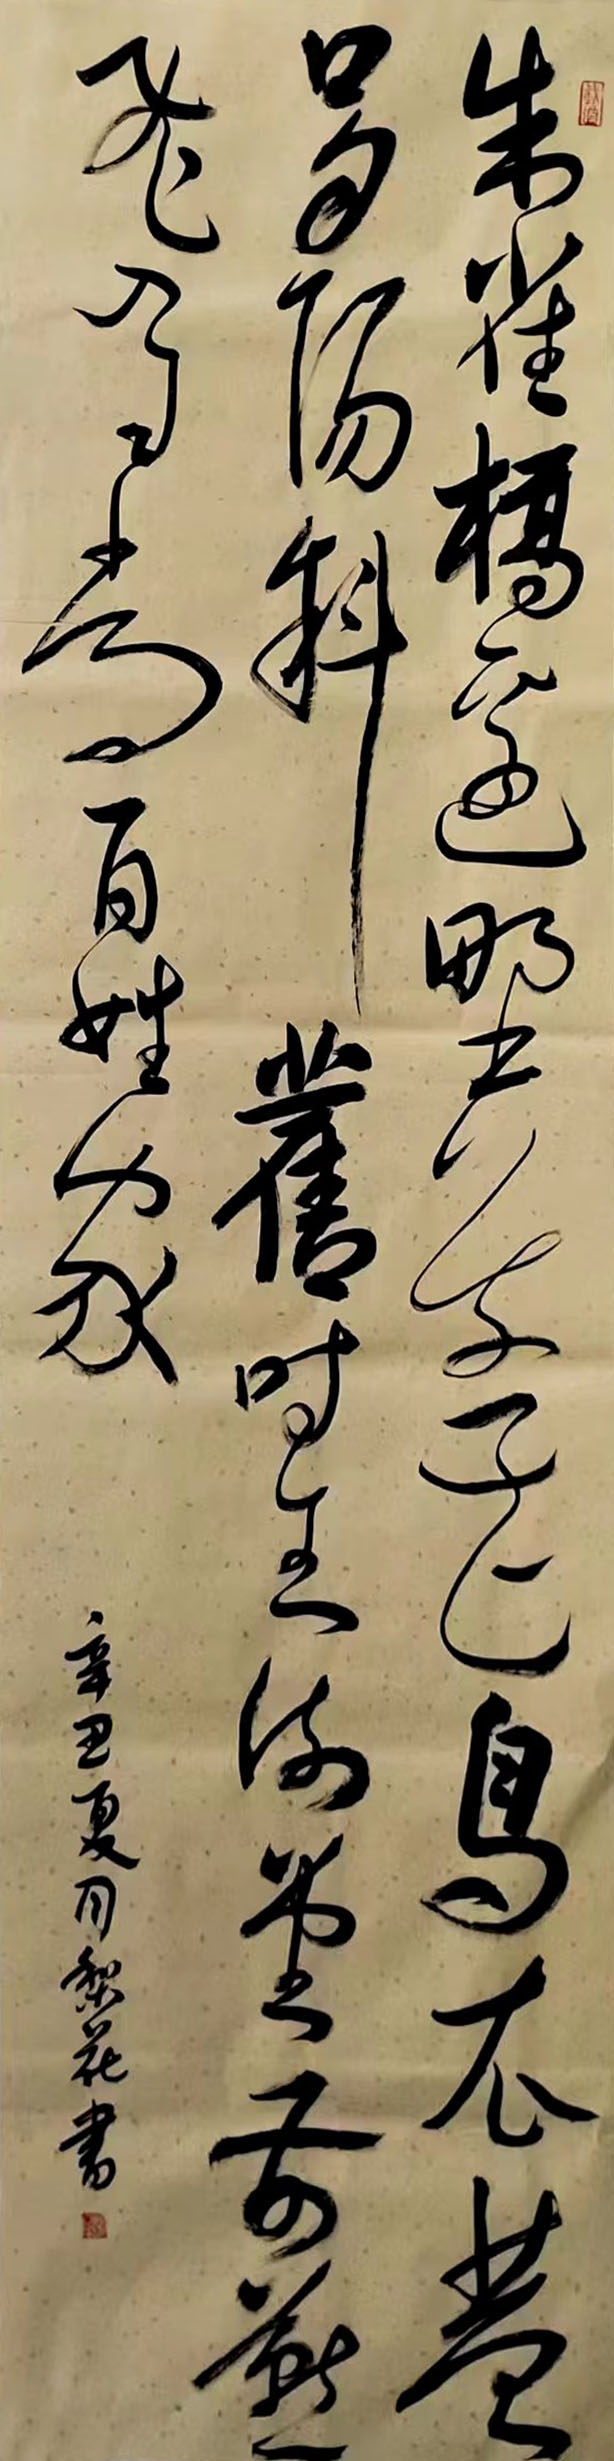 朱雀橋邊野草花烏衣巷
口夕陽斜舊時王謝堂前燕
飛入尋常百姓家
辛丑夏月梨花書